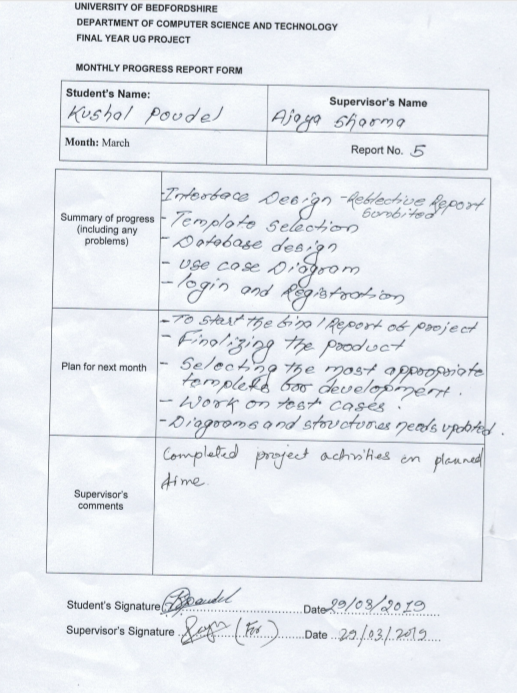 UNIVERSITY OF BEDFORDSHIRE
DEPARTMENT OF COMPUTER SCIENCE AND TECHNOLOGY
FINAL YEAR UG PROJECT
MONTHLY PROGRESS REPORT FORM
Student's Name:
Kushal Poudel
Supervisor's Name
Ajaya Sharma
Month: March
Report No. 5
Summary of progress
(including any
problems)
- Interface Design - Reflective Report
Sumbited
- Template Selection
- Database design
- Use case Diagram
- login and Registration
Plan for next month
- To start the final Report of project
- Finalizing the product
- Selecting the most appropriate
templets for development.
- Work on test cases.
- Diagrams and structures needs updated.
Supervisor's
comments
Completed project activities on planned
time
Student's Signature Date 29/03/2019
Supervisor's Signature (For) Date 29/03/2019